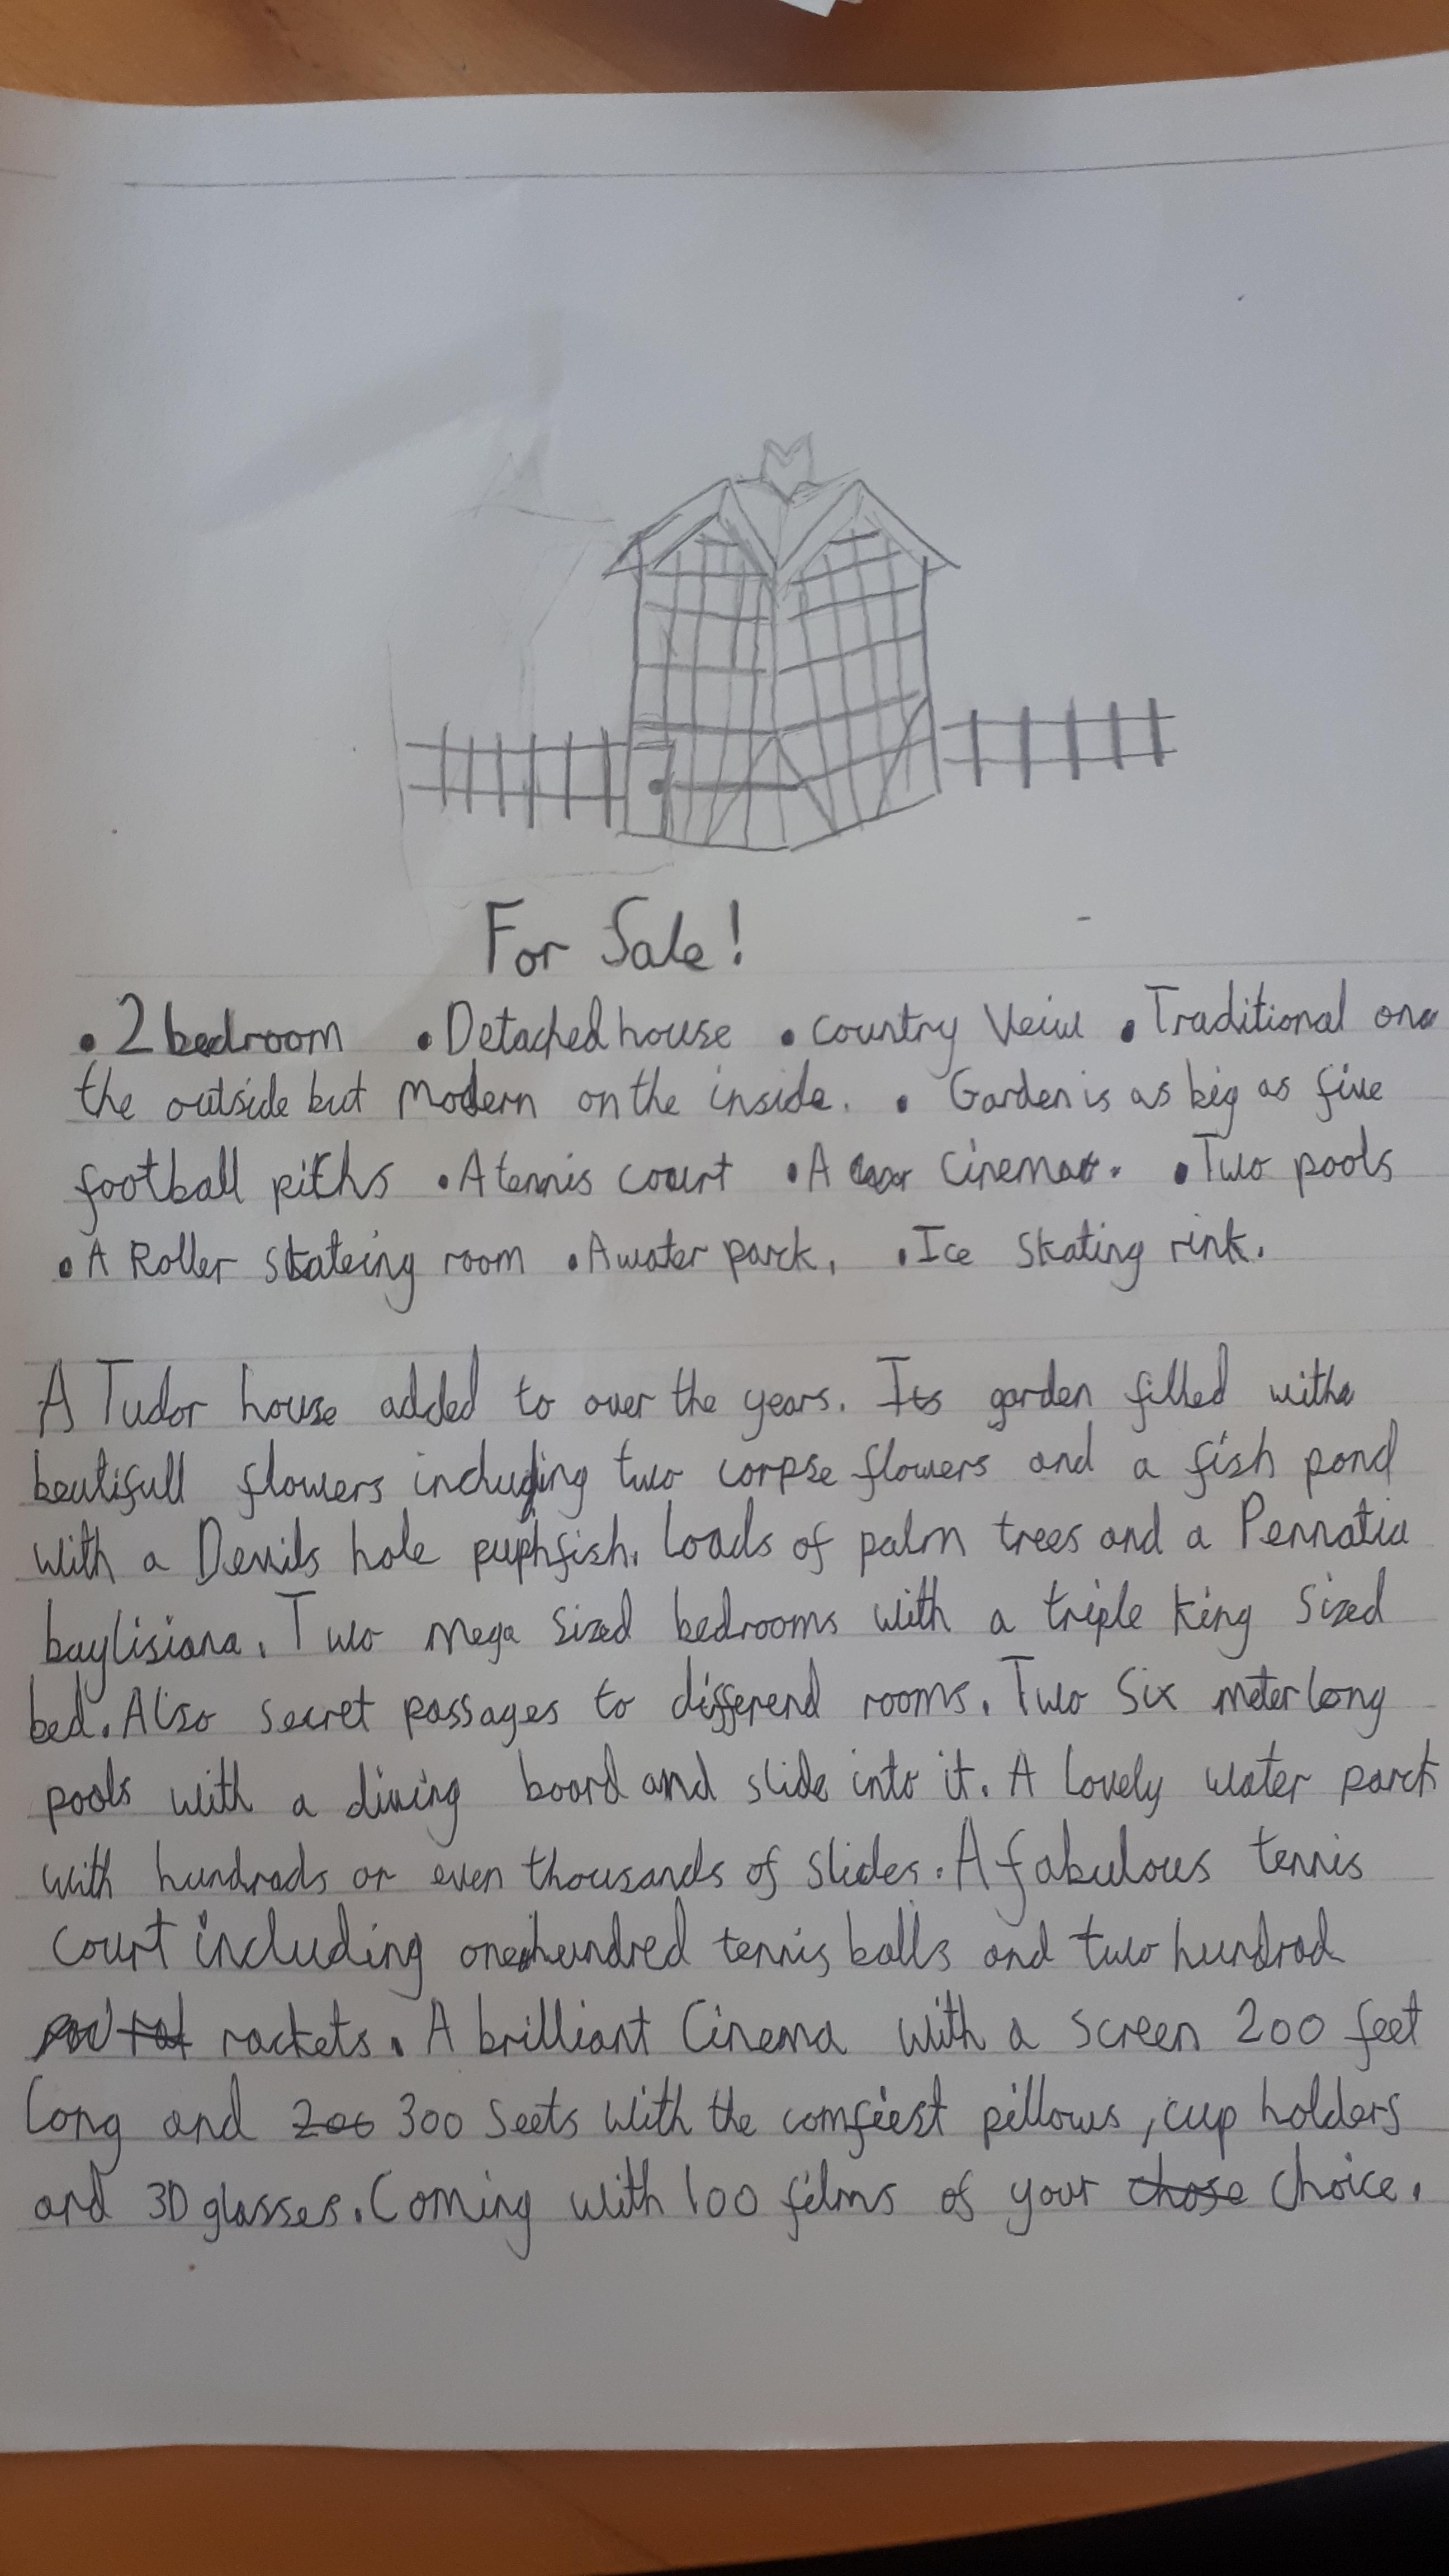 For Sale!
• 2 bedroom • Detached house • Country Veiw • Traditional on
the outside but Modern on the inside. • Garden is as big as five
football piths • A tennis court • A Cinema. • Two pools
• A Roller Skateing room • A water parck, • Ice Skating rink.
A Tudor house added to over the years. Its garden filled with
beutifull flowers including two corpse flowers and a fish pond
with a Devils hole pupfish. Loads of palm trees and a Pennatia
baylisiana. Two mega sized bedrooms with a triple King sized
bed. Also secret passages to differend rooms. Two Six meter long
pools with a diving board and slide into it. A lovely water parck
with hundrads or even thousands of slides. A fabulous tennis
court including one hundred tennis balls and two hundrad
rackets. A brilliant Cinema with a screen 200 feet
long and 200 300 Seets with the comfiest pillows, cup holders
and 3D glasses. Coming with 100 films of your chose choice.